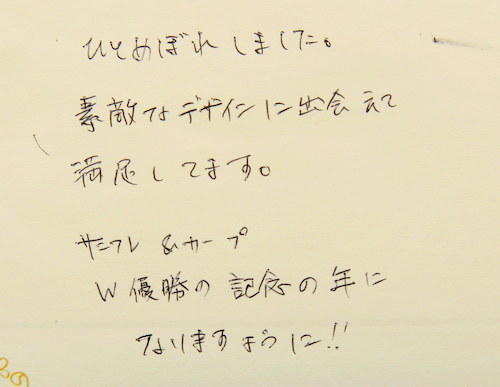 ひとめぼれしました。
素敵なデザインに出会えて
満足してます。
サンフレ &カープ
W優勝の記念の年に
なりますように!!